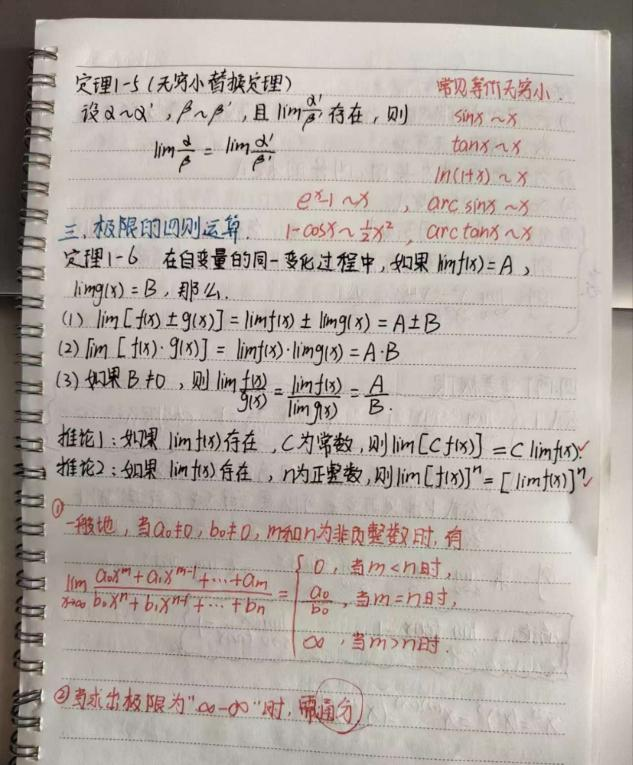 定理1-5（无穷小替换定理）
常见等价无穷小.
设α~α′，β~β′，且lim α′/β′ 存在，则
sinx~x
lim α/β = lim α′/β′
tanx~x
ln(1+x)~x
eˣ-1~x ，arc sinx~x
三、极限的四则运算.
1-cosx~½x²，arctanx~x
定理1-6 在自变量的同一变化过程中，如果limf(x)=A，
limg(x)=B，那么.
(1) lim[f(x)±g(x)]=limf(x)±limg(x)=A±B
(2) lim[f(x)·g(x)]=limf(x)·limg(x)=A·B
(3) 如果B≠0，则lim f(x)/g(x) = limf(x)/limg(x) = A/B.
推论1：如果limf(x)存在，C为常数，则lim[Cf(x)]=C limf(x).✓
推论2：如果limf(x)存在，n为正整数，则lim[f(x)]ⁿ=[limf(x)]ⁿ✓
①
一般地，当a₀≠0，b₀≠0，m和n为非负整数时，有
0，当m<n时，
lim x→∞ (a₀xᵐ+a₁xᵐ⁻¹+…+aₘ)/(b₀xⁿ+b₁xⁿ⁻¹+…+bₙ) = { a₀/b₀，当m=n时，
∞，当m>n时.
②当求出极限为"∞-∞"时，需通分